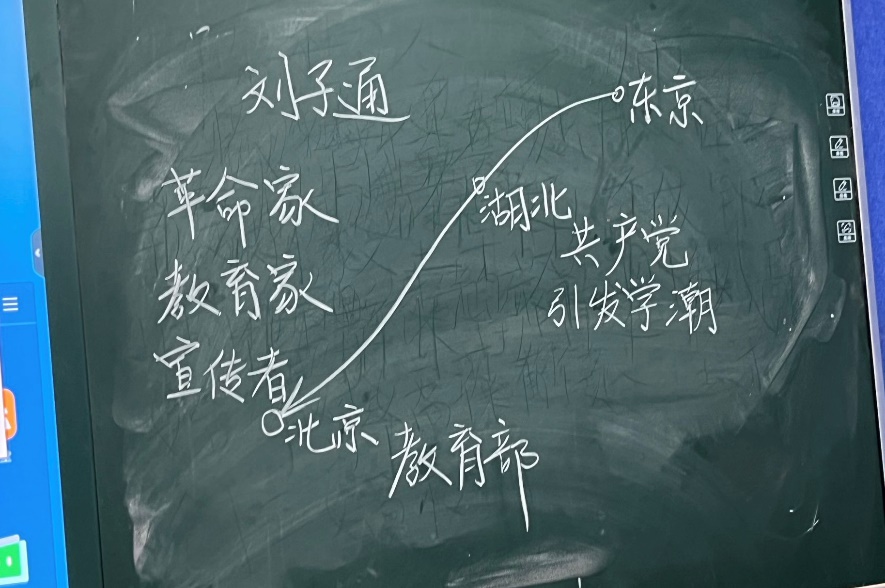 刘子通
革命家
教育家
宣传者
东京
湖北
共产党
引发学潮
北京
教育部